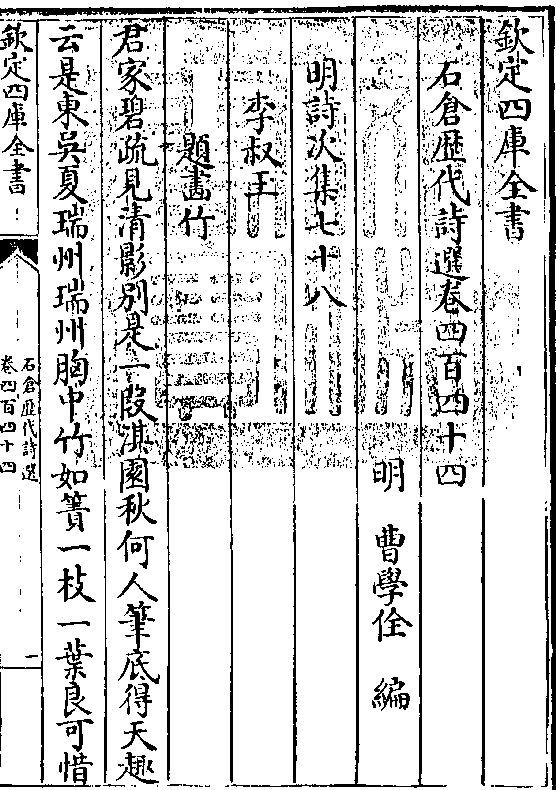 欽定四庫全書
石倉歴代詩選卷四百四十四
明　曹學佺　編
明詩次集七十八
李叔玉
題畫竹
君家碧疏見清影别是一段淇園秋何人筆底得天趣
云是東吳夏瑞州瑞州胸中竹如簀一枝一葉良可惜
欽定四庫全書
石倉歴代詩選
卷四百四十四
一